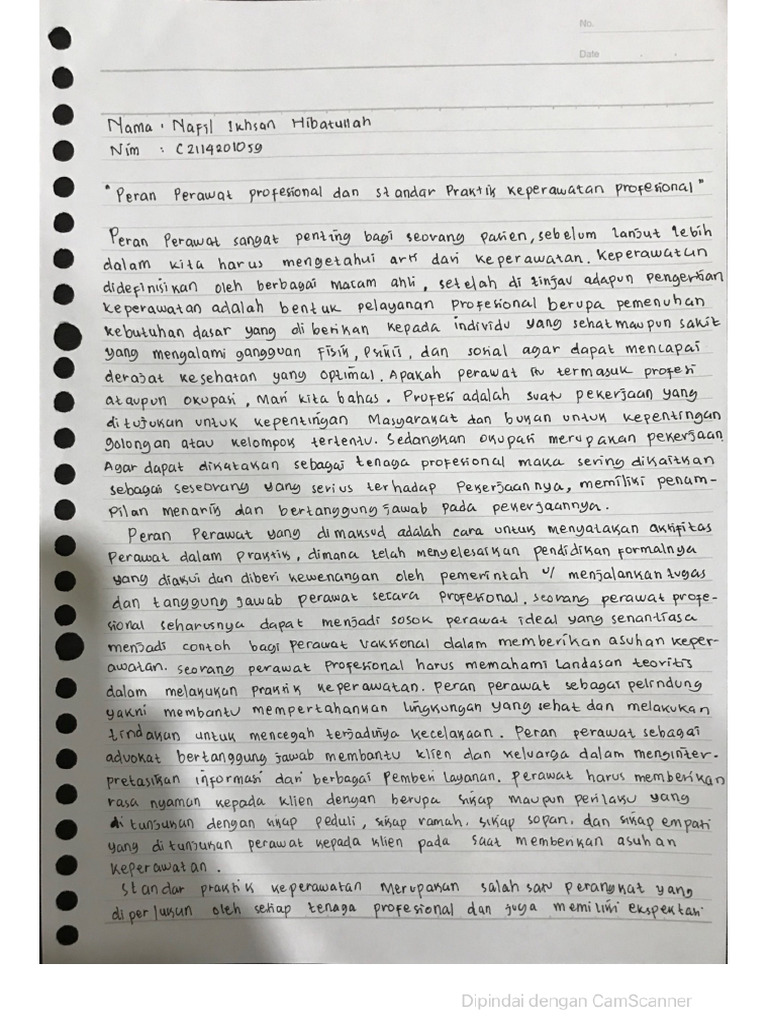 No.
Date
Nama : Nafil Ikhsan Hibatullah
Nim : C2114201059
"Peran Perawat profesional dan standar Praktik Keperawatan profesional"
Peran Perawat sangat penting bagi seorang pasien, sebelum lanjut lebih
dalam kita harus mengetahui arti dari keperawatan. Keperawatan
didefinisikan oleh berbagai macam ahli, setelah di tinjau adapun pengertian
keperawatan adalah bentuk pelayanan profesional berupa pemenuhan
kebutuhan dasar yang di berikan kepada individu yang sehat maupun sakit
yang mengalami gangguan Fisik, Psikis, dan sosial agar dapat mencapai
derajat kesehatan yang optimal. Apakah perawat itu termasuk profesi
ataupun okupasi, mari kita bahas. Profesi adalah suatu pekerjaan yang
ditujukan untuk kepentingan Masyarakat dan bukan untuk kepentingan
golongan atau kelompok tertentu. Sedangkan okupasi merupakan pekerjaan
Agar dapat dikatakan sebagai tenaga profesional maka sering dikaitkan
sebagai seseorang yang serius terhadap pekerjaannya, memiliki penam-
pilan menarik dan bertanggung jawab pada pekerjaannya.
Peran Perawat yang dimaksud adalah cara untuk menyatakan aktifitas
Perawat dalam praktik, dimana telah menyelesaikan pendidikan formalnya
yang diakui dan diberi kewenangan oleh pemerintah u/ menjalankan tugas
dan tanggung jawab perawat secara profesional. seorang perawat profe-
sional seharusnya dapat menjadi sosok perawat ideal yang senantiasa
menjadi contoh bagi perawat vaksional dalam memberikan asuhan keper-
awatan. seorang perawat Profesional harus memahami landasan teoritis
dalam melakukan praktik keperawatan. Peran perawat sebagai pelindung
yakni membantu mempertahankan lingkungan yang sehat dan melakukan
tindakan untuk mencegah terjadinya kecelakaan. Peran perawat sebagai
advokat bertanggung jawab membantu klien dan keluarga dalam menginter-
pretasikan informasi dari berbagai Pemberi Layanan. Perawat harus memberikan
rasa nyaman kepada klien dengan berupa sikap maupun perilaku yang
di tunjukan dengan sikap peduli, sikap ramah, sikap sopan, dan sikap empati
yang di tunjukan perawat kepada klien pada saat memberikan asuhan
keperawatan.
Standar praktik keperawatan Merupakan salah satu perangkat yang
diperlukan oleh setiap tenaga profesional dan juga memiliki ekspektasi
Dipindai dengan CamScanner